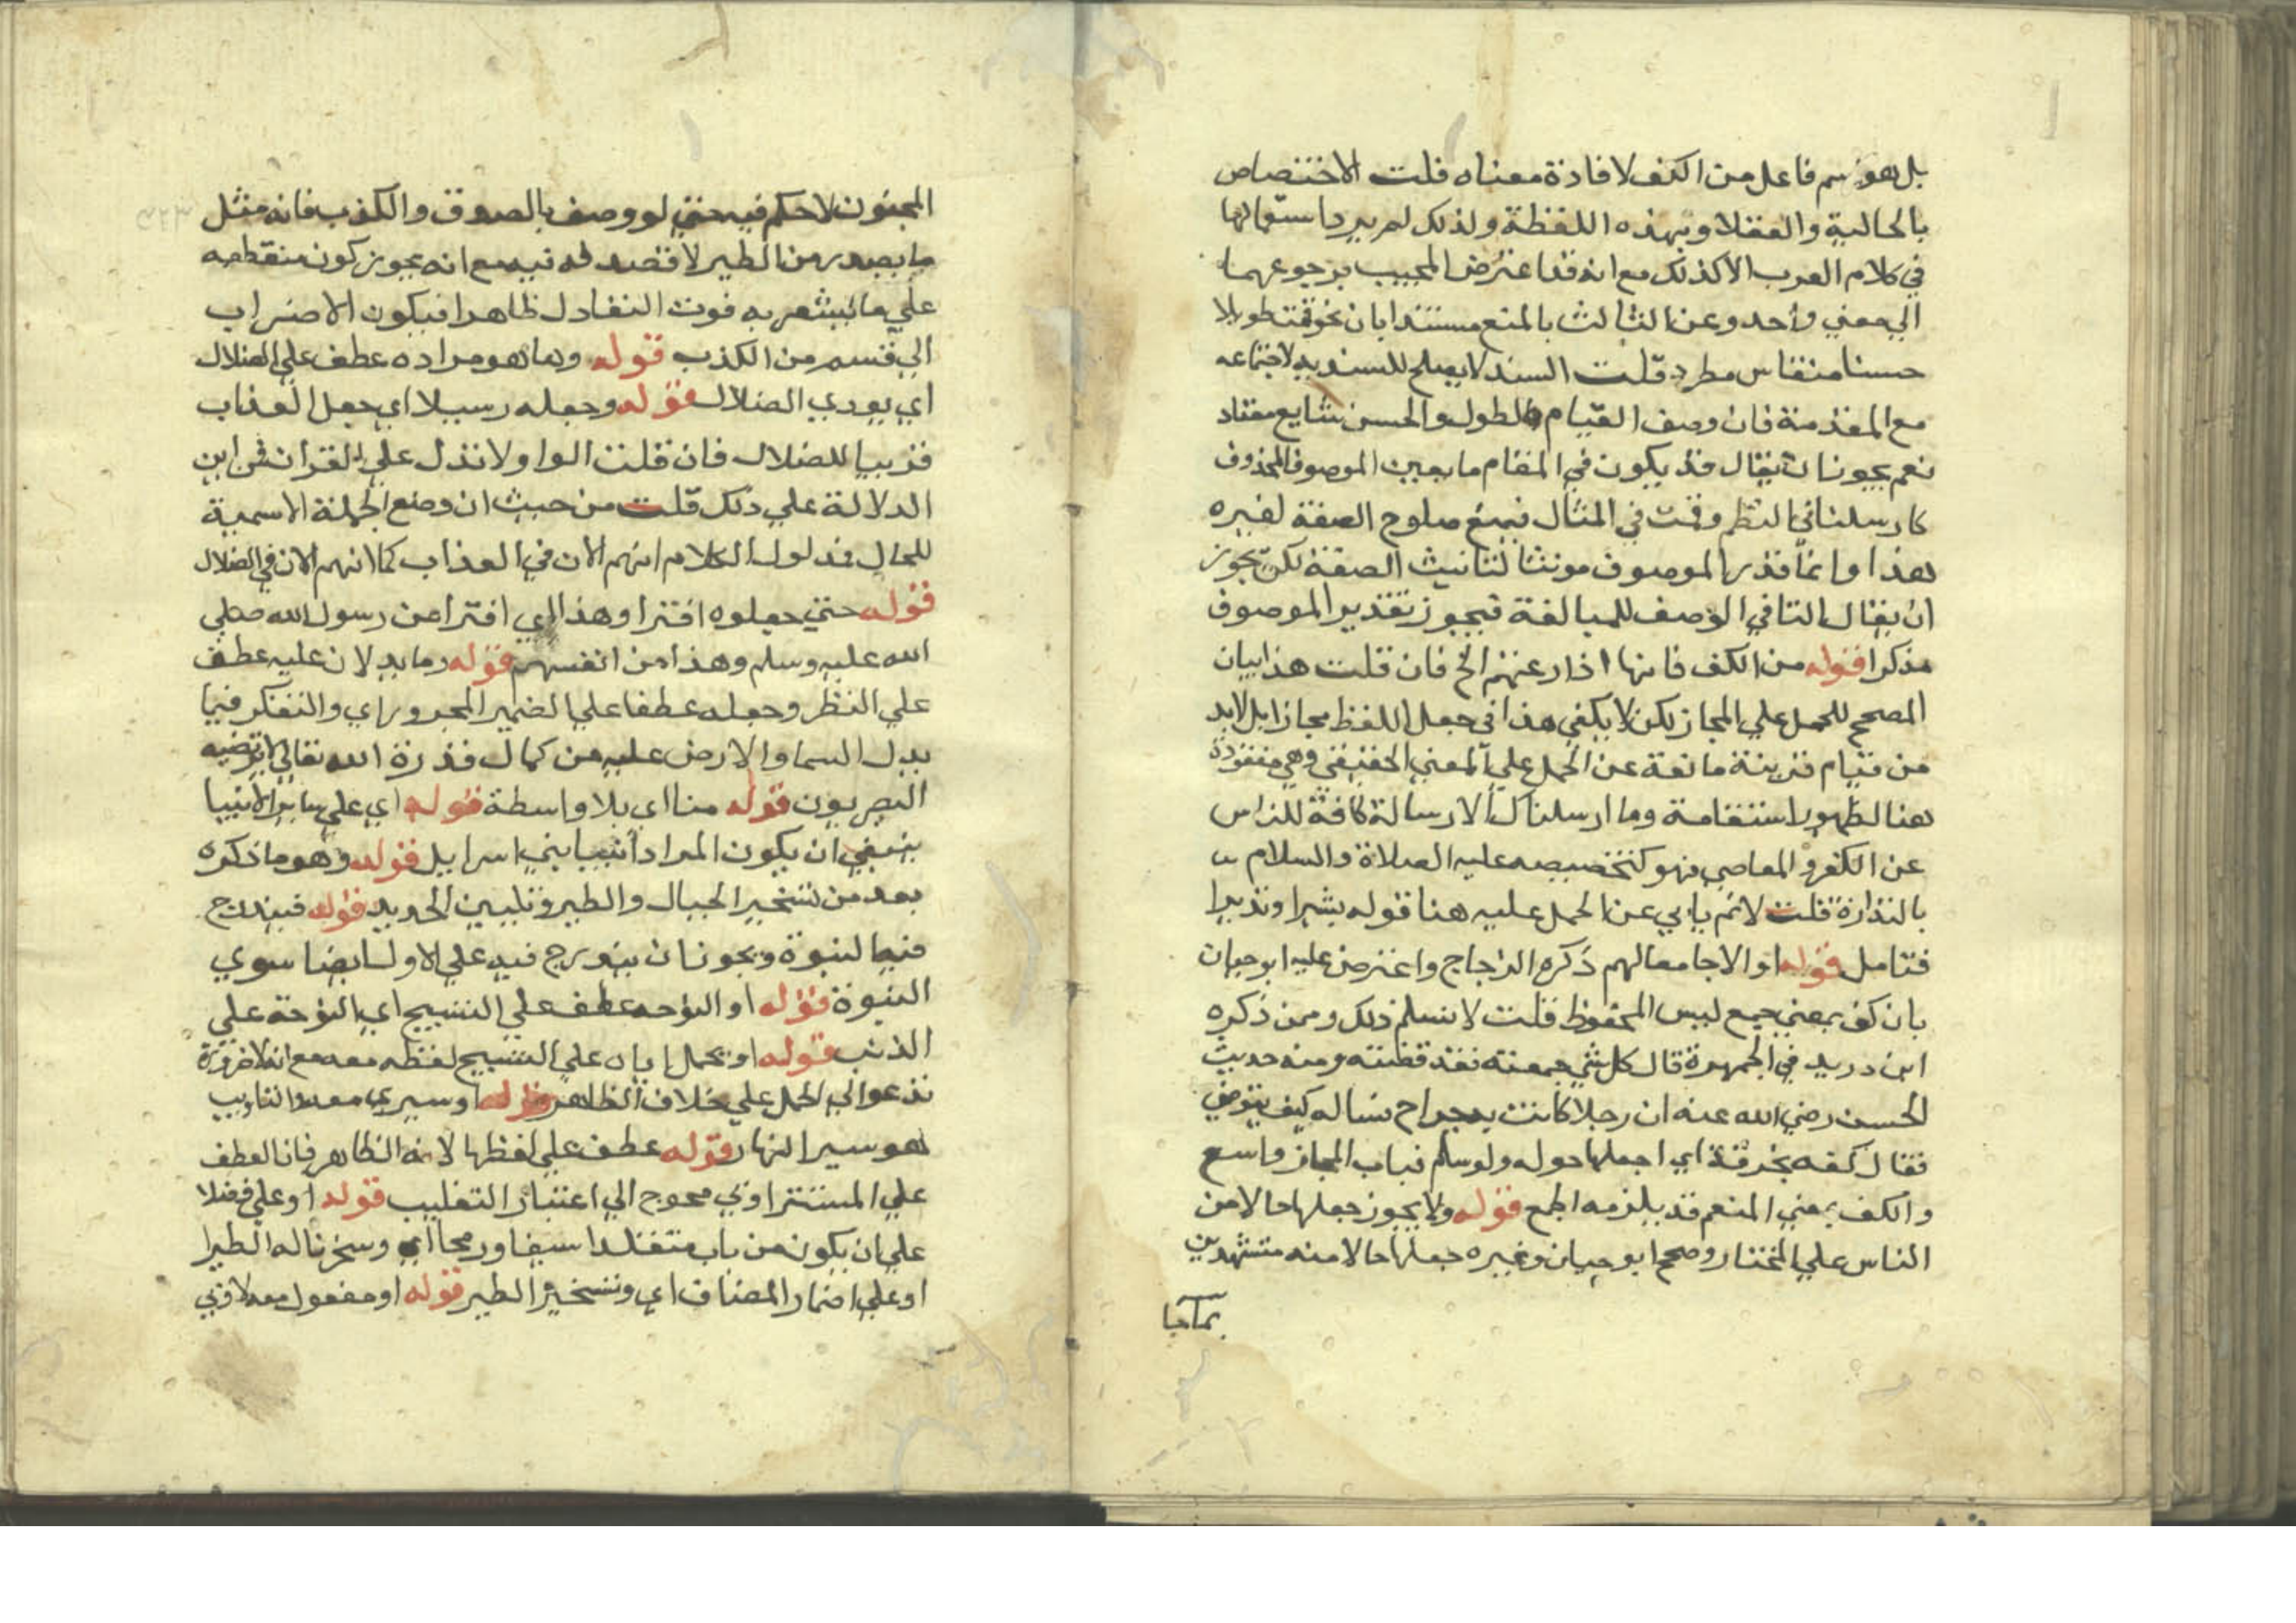 بل هو اسم فاعل من الكف لافادة معناه قلت الاختصاص
بالحالية والعقلا وبهذه اللفظة ولذلك لم يرد استعمالها
في كلام العرب الا كذلك مع انه قد اعترض المجيب برجوعهما
الي معني واحد وعن الثالث بالمنع مستندا بان نحو قمت طويلا
حسنا منقاس مطرد قلت السند لا يصلح للسندية لاجتماعه
مع المقدمة فان وصف القيام بالطول والحسن شايع معتاد
نعم يجوز ان يقال قد يكون في المقام ما يعين الموصوف المحذوف
كارسلنا في النظم وقمت في المثال فيمنع صلوح الصفة لغيره
هذا وانما قدر الموصوف مونثا لتانيث الصفة لكن يجوز
ان يقال التا في الوصف للمبالغة فيجوز تقدير الموصوف
مذكرا قوله من الكف فانها اذا رعتهم الخ فان قلت هذا بيان
المصحح للحمل علي المجاز لكن لا يكفي هذا في جعل اللفظ مجازا بل لابد
من قيام قرينة مانعة عن الحمل علي المعني الحقيقي وهي مفقودة
هنا لظهور استقامة وما ارسلناك الا رسالة كافة للناس
عن الكفر والمعاصي فهو كتخصيصه عليه الصلاة والسلام
بالنذارة قلت لا نم يابي عن الحمل عليه هنا قوله بشيرا ونذيرا
فتامل قوله او الا جامعا لهم ذكره الزجاج واعترض عليه ابو حيان
بان كف بمعني جمع ليس المحفوظ قلت لا نسلم ذلك وممن ذكره
ابن دريد في الجمهرة قال كل شي جمعته فقد كففته ومنه حديث
الحسن رضي الله عنه ان رجلا كانت به جراح فساله كيف يتوضي
فقال كفه بخرقة اي اجعلها حوله ولو سلم فباب المجاز واسع
والكف بمعني المنع قد يلزمه الجمع قوله ولا يجوز جعلها حالا من
الناس علي المختار وصحح ابو حيان وغيره جعلها حالا منه مستشهدين
بماجا
المجنون لا حكم فيه حتي لو وصف بالصدق والكذب فانه مثل
ما يصدر من الطير لا قصد له فيه مع انه يجوز كون منقطعه
علي ما يشعر به فوت التعادل ظاهرا فيكون الاضراب
الي قسم من الكذب قوله وما هو مراده عطف علي الضلال
اي يودي الضلال قوله وجعله رسيلا اي جعل العذاب
قريبا للضلال فان قلت الواو لا تدل علي القران فمن اين
الدلالة علي ذلك قلت من حيث ان وضع الجملة الاسمية
للحال فدلول الكلام انهم الان في العذاب كما انهم الان في الضلال
قوله حتي جعلوه افترا وهذا اي افترا من رسول الله صلي
الله عليه وسلم وهذا من انفسهم قوله وما يدلان عليه عطف
علي النظر وجعله عطفا علي الضمير المجرور اي والتفكر فيما
يدل السما والارض عليه من كمال قدرة الله تعالي لا يرتضيه
البصريون قوله منا اي بلا واسطة قوله اي علي ساير الانبيا
ينبغي ان يكون المراد انبيا بني اسرايل قوله وهو ما ذكره
بعد من تسخير الجبال والطير وتليين الحديد قوله فيندرج
فيه النبوة ويجوز ان يندرج فيه علي الاول ايضا سوي
النبوة قوله او النوحه عطف علي التسبيح اي النوحة علي
الذنب قوله او بحمل اياه علي التسبيح لفظه معه مع انه لا ضرورة
تدعو الي الحمل علي خلاف الظاهر قوله او سيري معه والتاويب
هو سير النهار قوله عطف علي لفظها لانه الظاهر فان العطف
علي المستتر اوبي محوج الي اعتبار التغليب قوله او علي فضلا
علي ان يكون من باب متقلدا سيفا ورمحا اي وسخرنا له الطير
او علي اضمار المضاف اي وتسخير الطير قوله او مفعول معه لاوبي